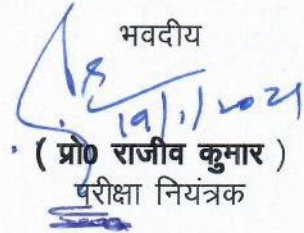 भवदीय
19/1/2021
( प्रो0 राजीव कुमार )
परीक्षा नियंत्रक